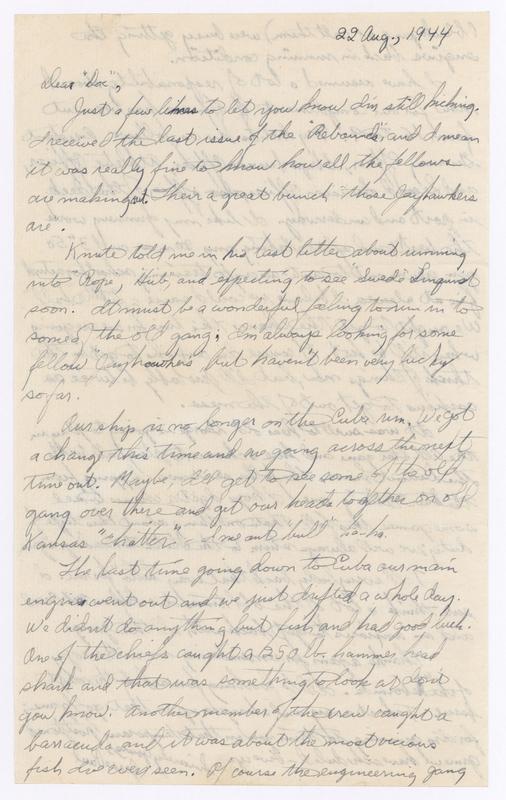 22 Aug., 1944
Dear "Doc",
Just a few lines to let you know I'm still kicking.
I received the last issue of the "Rebounds", and I mean
it was really fine to know how all the fellows
are making out. Their a great bunch those Jayhawkers
are.
Knute told me in his last letter about running
into "Rope, Hub, and expecting to see Swede Lunquist
soon. It must be a wonderful feeling to run in to
some of the old gang. I'm always looking for some
fellow "Jayhawkers" but haven't been very lucky
so far.
Our ship is no longer on the Cuba run. We got
a change this time and are going across the next
time out. Maybe, I'll get to see some of the old
gang over there and get our heads together on old
Kansas "chatter" - I meant "bull" ha-ha.
The last time going down to Cuba our main
engines went out and we just drifted a whole day.
We didn't do anything but fish and had good luck.
One of the chiefs caught a 250 lb. hammer head
shark and that was something to look at don't
you know. Another member of the crew caught a
barracuda and it was about the most vicious
fish I've ever seen. Of course the engineering gang